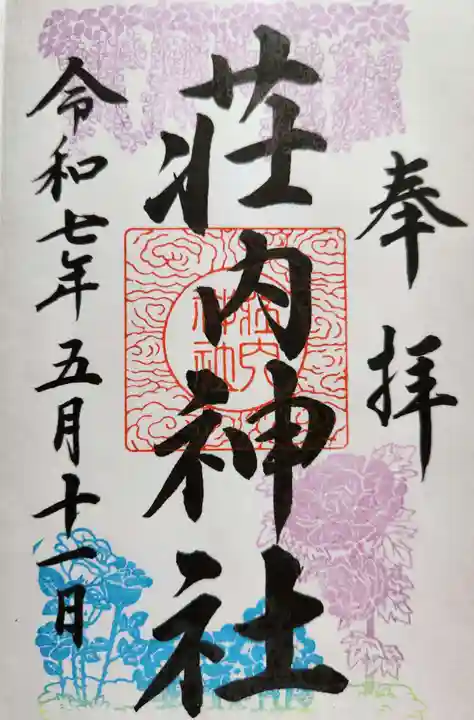 奉拝
荘内神社
荘内神社
令和七年五月十一日